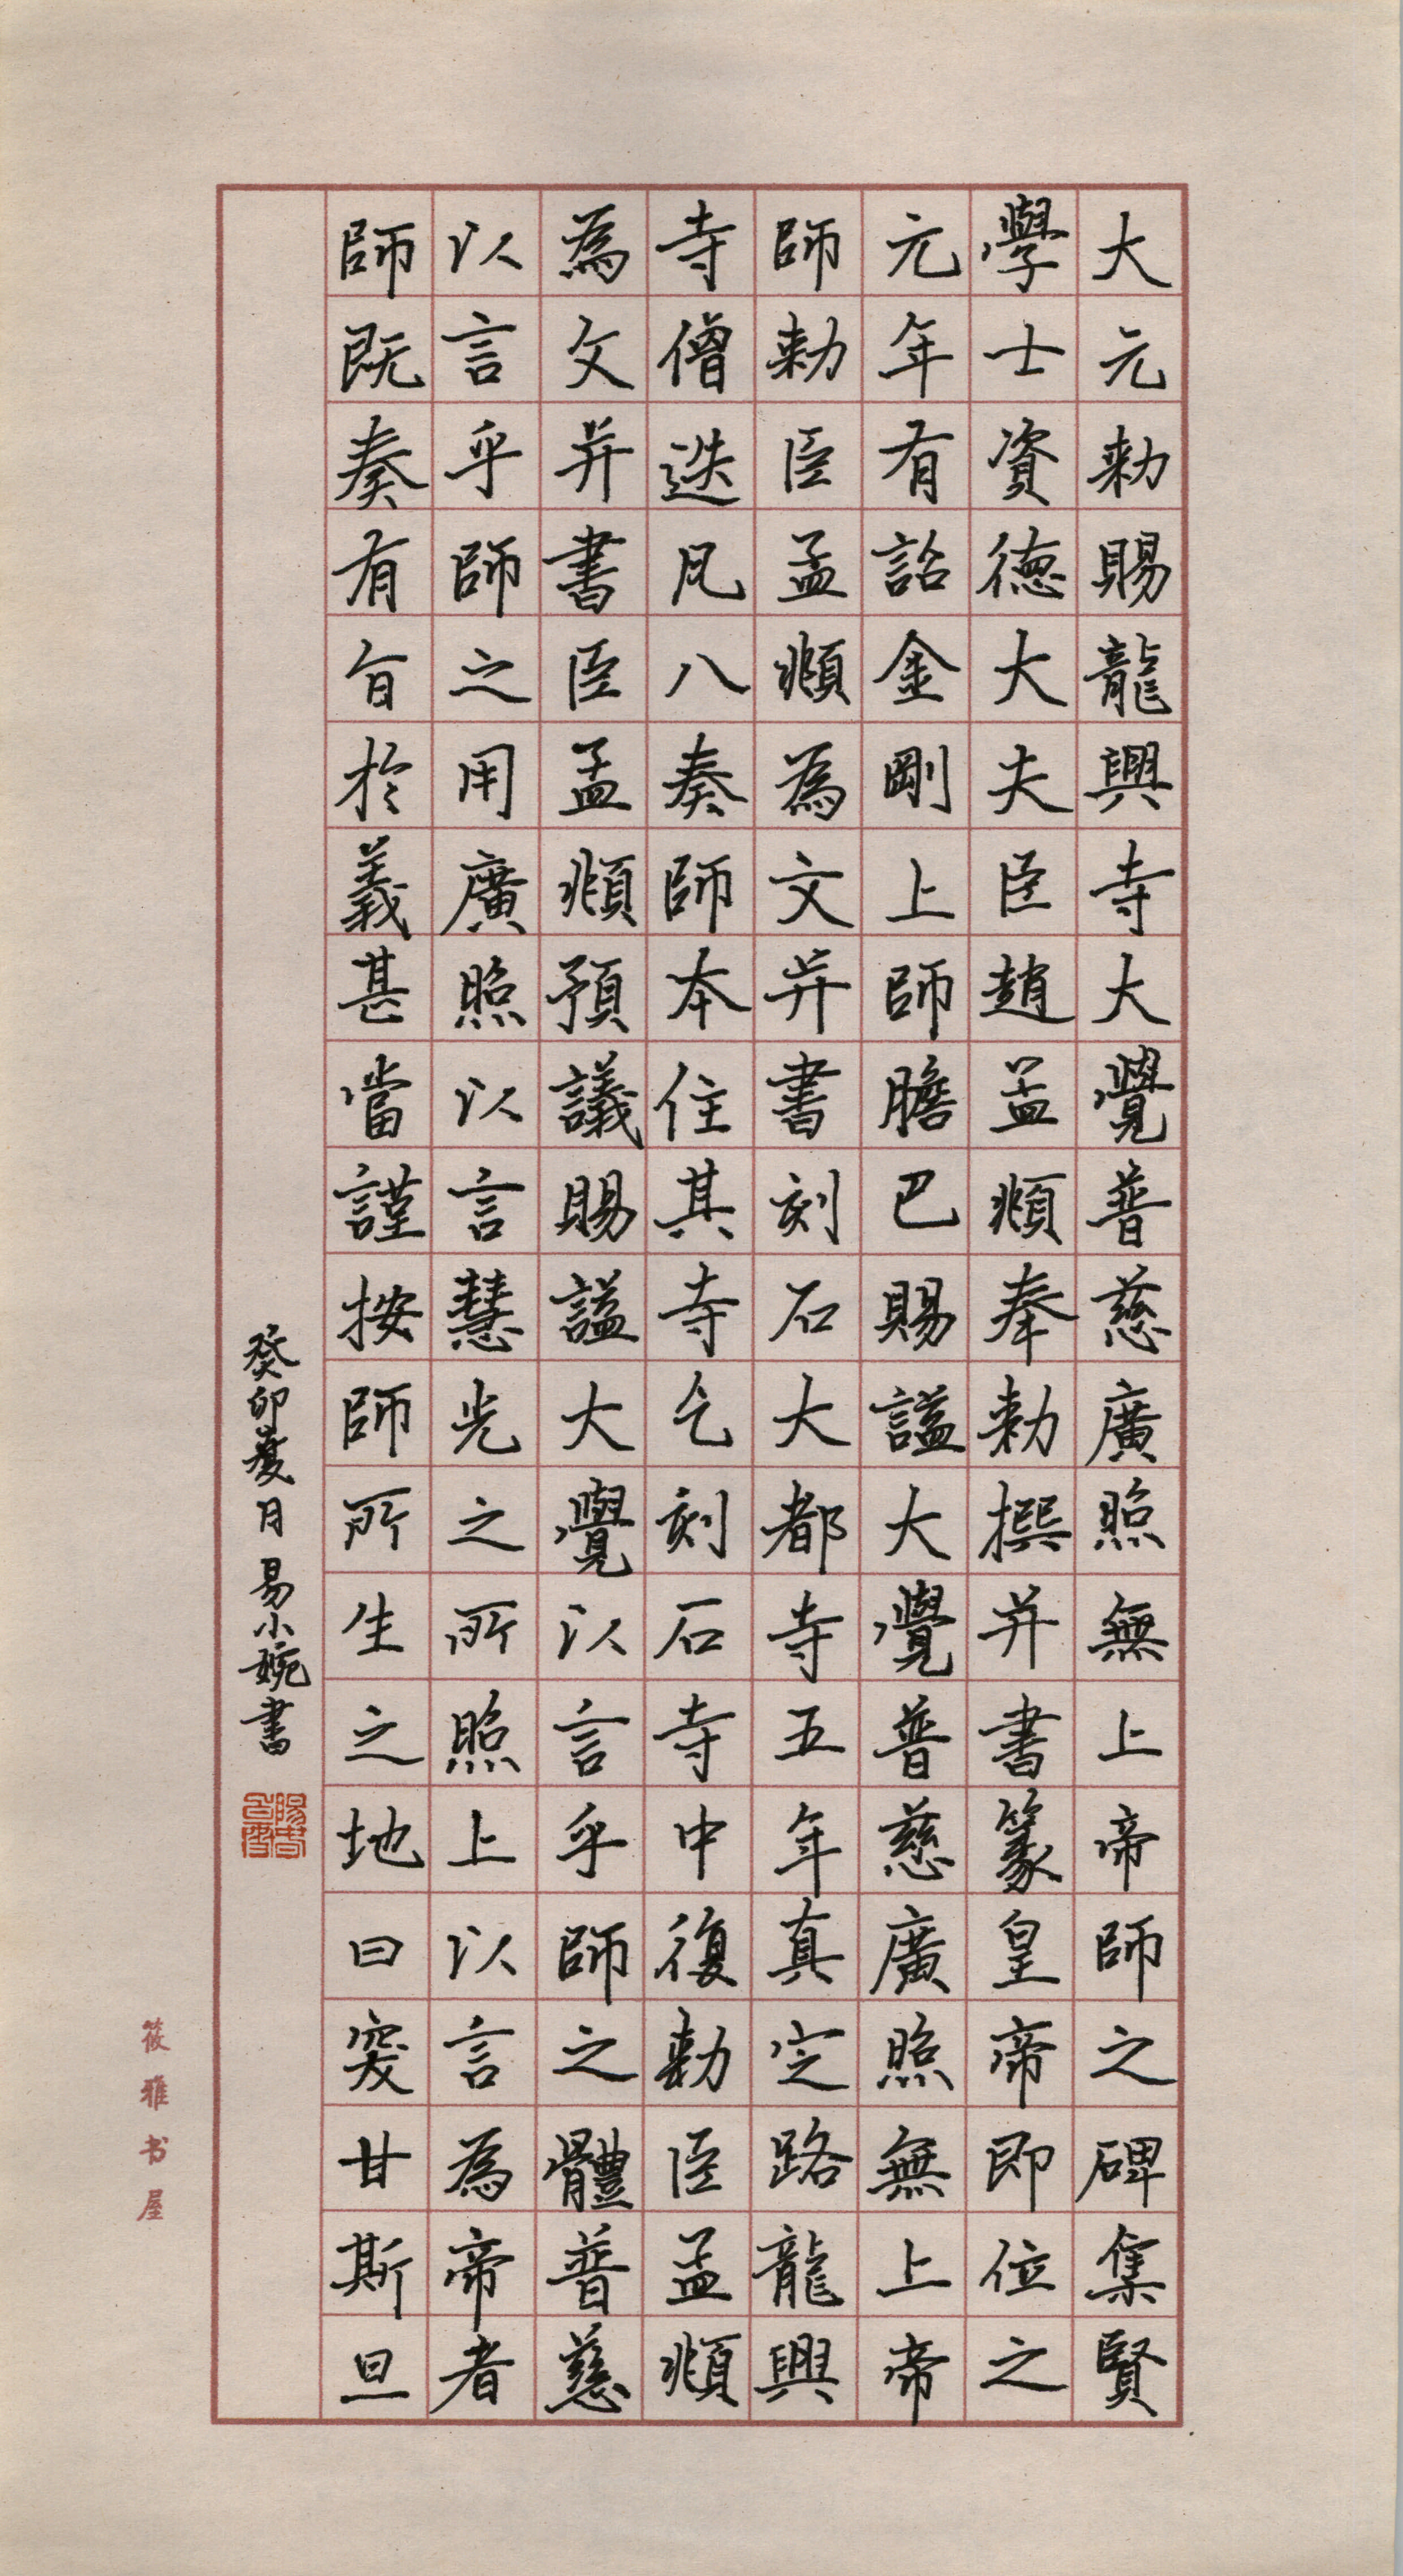 大元勅賜龍興寺大覺普慈廣照無上帝師之碑集賢
學士資德大夫臣趙孟頫奉勅撰并書篆皇帝即位之
元年有詔金剛上師膽巴賜謚大覺普慈廣照無上帝
師勅臣孟頫為文并書刻石大都寺五年真定路龍興
寺僧迭凡八奏師本住其寺乞刻石寺中復勅臣孟頫
為文并書臣孟頫預議賜謚大覺以言乎師之體普慈
以言乎師之用廣照以言慧光之所照上以言為帝者
師既奏有旨於義甚當謹按師所生之地曰突甘斯旦
癸卯夏月易小婉書
筱雅书屋